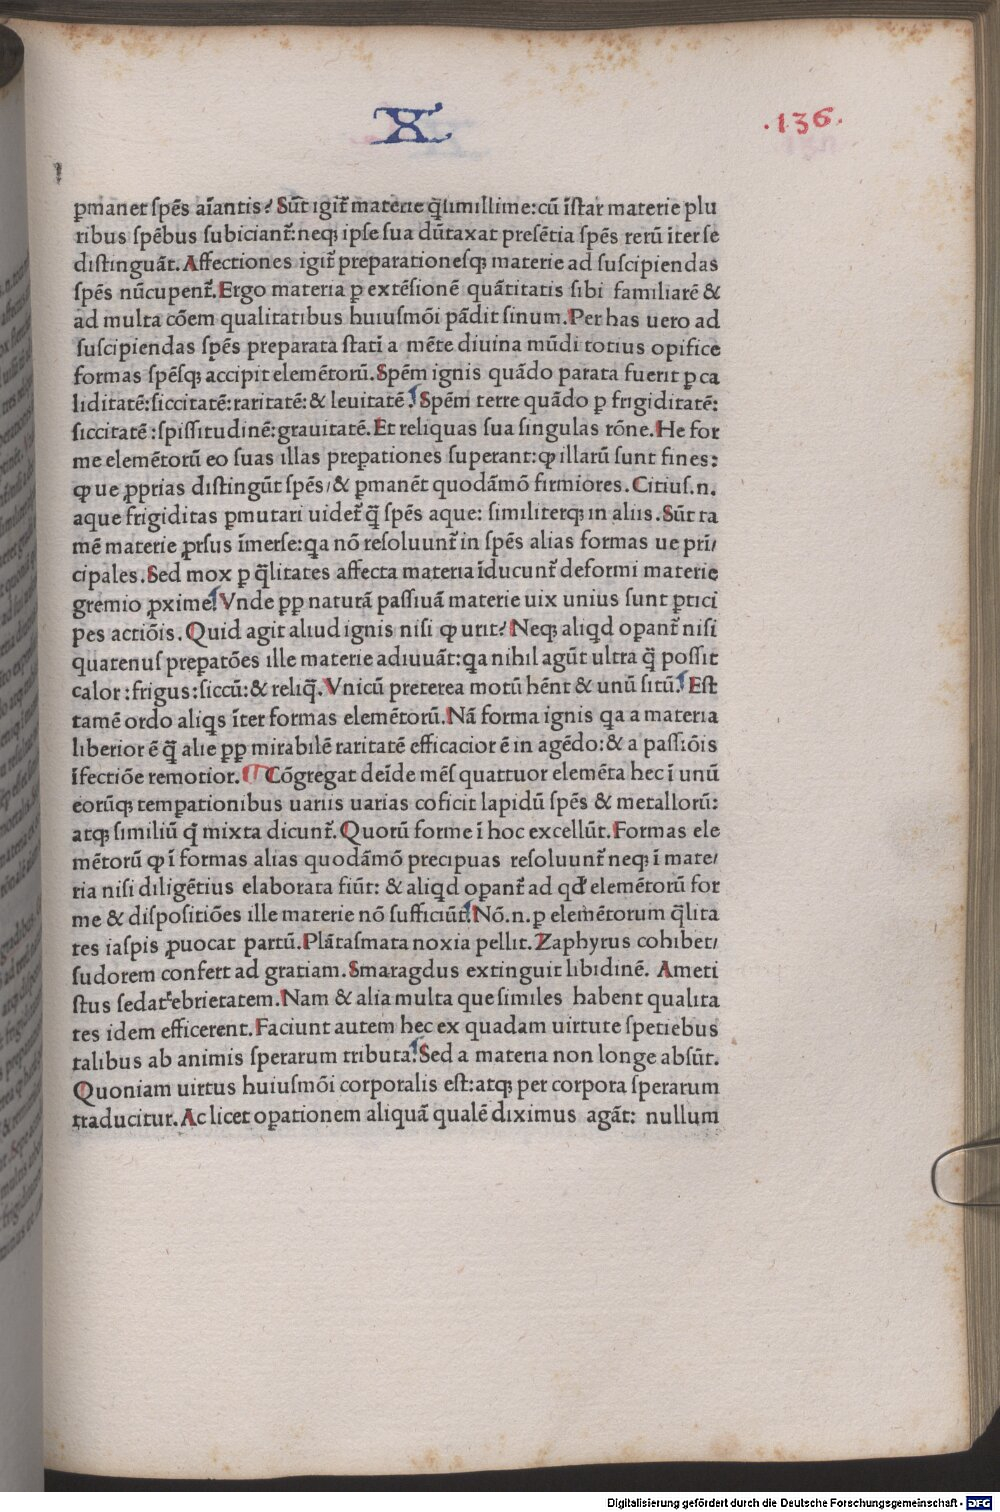 X
.136.
ꝑmanet ſpēs aīantis? Sūt igit᷑ materie q̄ſimillime:cū īſtar materie plu
ribus ſpēbus ſubiciant᷑:neqꝫ ipſe ſua dūtaxat preſētia ſpēs rerū īter ſe
diſtinguāt. Affectiones igit᷑ preparationeſqꝫ materie ad ſuſcipiendas
ſpēs nūcupent᷑. Ergo materia ꝑ extēſionē quātitatis ſibi familiarē &
ad multa cōem qualitatibus huiuſmōi pādit ſinum. Per has uero ad
ſuſcipiendas ſpēs preparata ſtatī a mēte diuina mūdi totius opifice
formas ſpēſqꝫ accipit elemētorū. Spēm ignis quādo parata fuerit ꝑ ca
liditatē:ſiccitatē:raritatē:& leuitatē. Spēm terre quādo ꝑ frigiditatē:
ſiccitatē:ſpiſſitudinē:grauitatē. Et reliquas ſua ſingulas rōne. He for
me elemētorū eo ſuas illas preꝑationes ſuperant:ꝙ illarū ſunt fines:
ꝙ ue ꝓprias diſtingūt ſpēs/& ꝑmanēt quodāmō firmiores. Citiuſ.n.
aque frigiditas ꝑmutari uidet᷑ q̄ ſpēs aque: ſimiliterqꝫ in aliis. Sūt ta
mē materie ꝓrſus īmerſe:qa nō reſoluunt᷑ in ſpēs alias formas ue prī/
cipales. Sed mox ꝑ q̄litates affecta materia īducunt᷑ deformi materie
gremio ꝓxime. Vnde ꝑꝑ naturā paſſiuā materie uix unius ſunt ꝑtici
pes actiōis. Quid agit aliud ignis niſi ꝙ urit? Neqꝫ aliqd oꝑant᷑ niſi
quatenuſ preꝑatōes ille materie adiuuāt:qa nihil agūt ultra q̄ poſſit
calor:frigus:ſiccū:& reliq̄. Vnicū preterea motū hēnt & unū ſitū. Eſt
tamē ordo aliqs īter formas elemētorū. Nā forma ignis qa a materia
liberior ē q̄ alie ꝑꝑ mirabilē raritatē efficacior ē in agēdo:& a paſſiōis
īfectiōe remotior. Cōgregat deīde mēſ quattuor elemēta hec ī unū
eorūqꝫ temꝑationibus uariis uarias coficit lapidū ſpēs & metallorū:
atqꝫ ſimiliū q̄ mixta dicunt᷑. Quorū forme ī hoc excellūt. Formas ele
mētorū ꝙ ī formas alias quodāmō precipuas reſoluunt᷑ neqꝫ ī mate/
ria niſi diligētius elaborata fiūt: & aliqd oꝑant᷑ ad qd elemētorū for
me & diſpoſitiōes ille materie nō ſufficiūt. Nō.n. ꝑ elemētorum q̄lita
tes iaſpis ꝓuocat partū. Plātaſmata noxia pellit. Zaphyrus cohibet/
ſudorem confert ad gratiam. Smaragdus extinguit libidinē. Ameti
ſtus ſedat ebrietatem. Nam & alia multa que ſimiles habent qualita
tes idem efficerent. Faciunt autem hec ex quadam uirtute ſpetiebus
talibus ab animis ſperarum tributa. Sed a materia non longe abſūt.
Quoniam uirtus huiuſmōi corporalis eſt:atqꝫ per corpora ſperarum
traducitur. Ac licet oꝑationem aliquā qualē diximus agāt: nullum
Digitalisierung gefördert durch die Deutsche Forschungsgemeinschaft - DFG